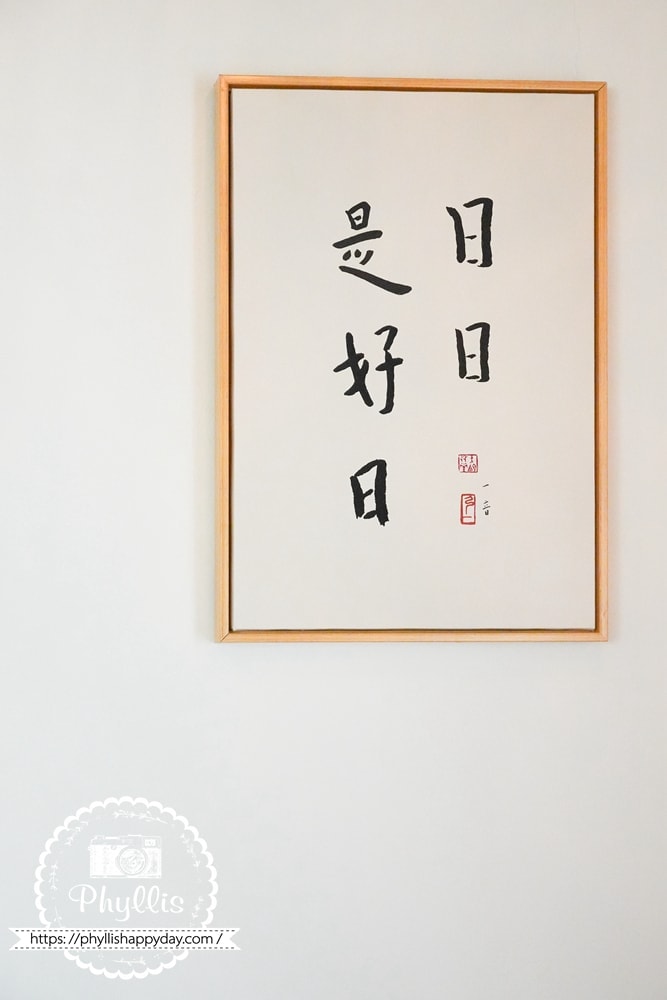 日日
是好日
一音
Phyllis
https://phyllishappyday.com/